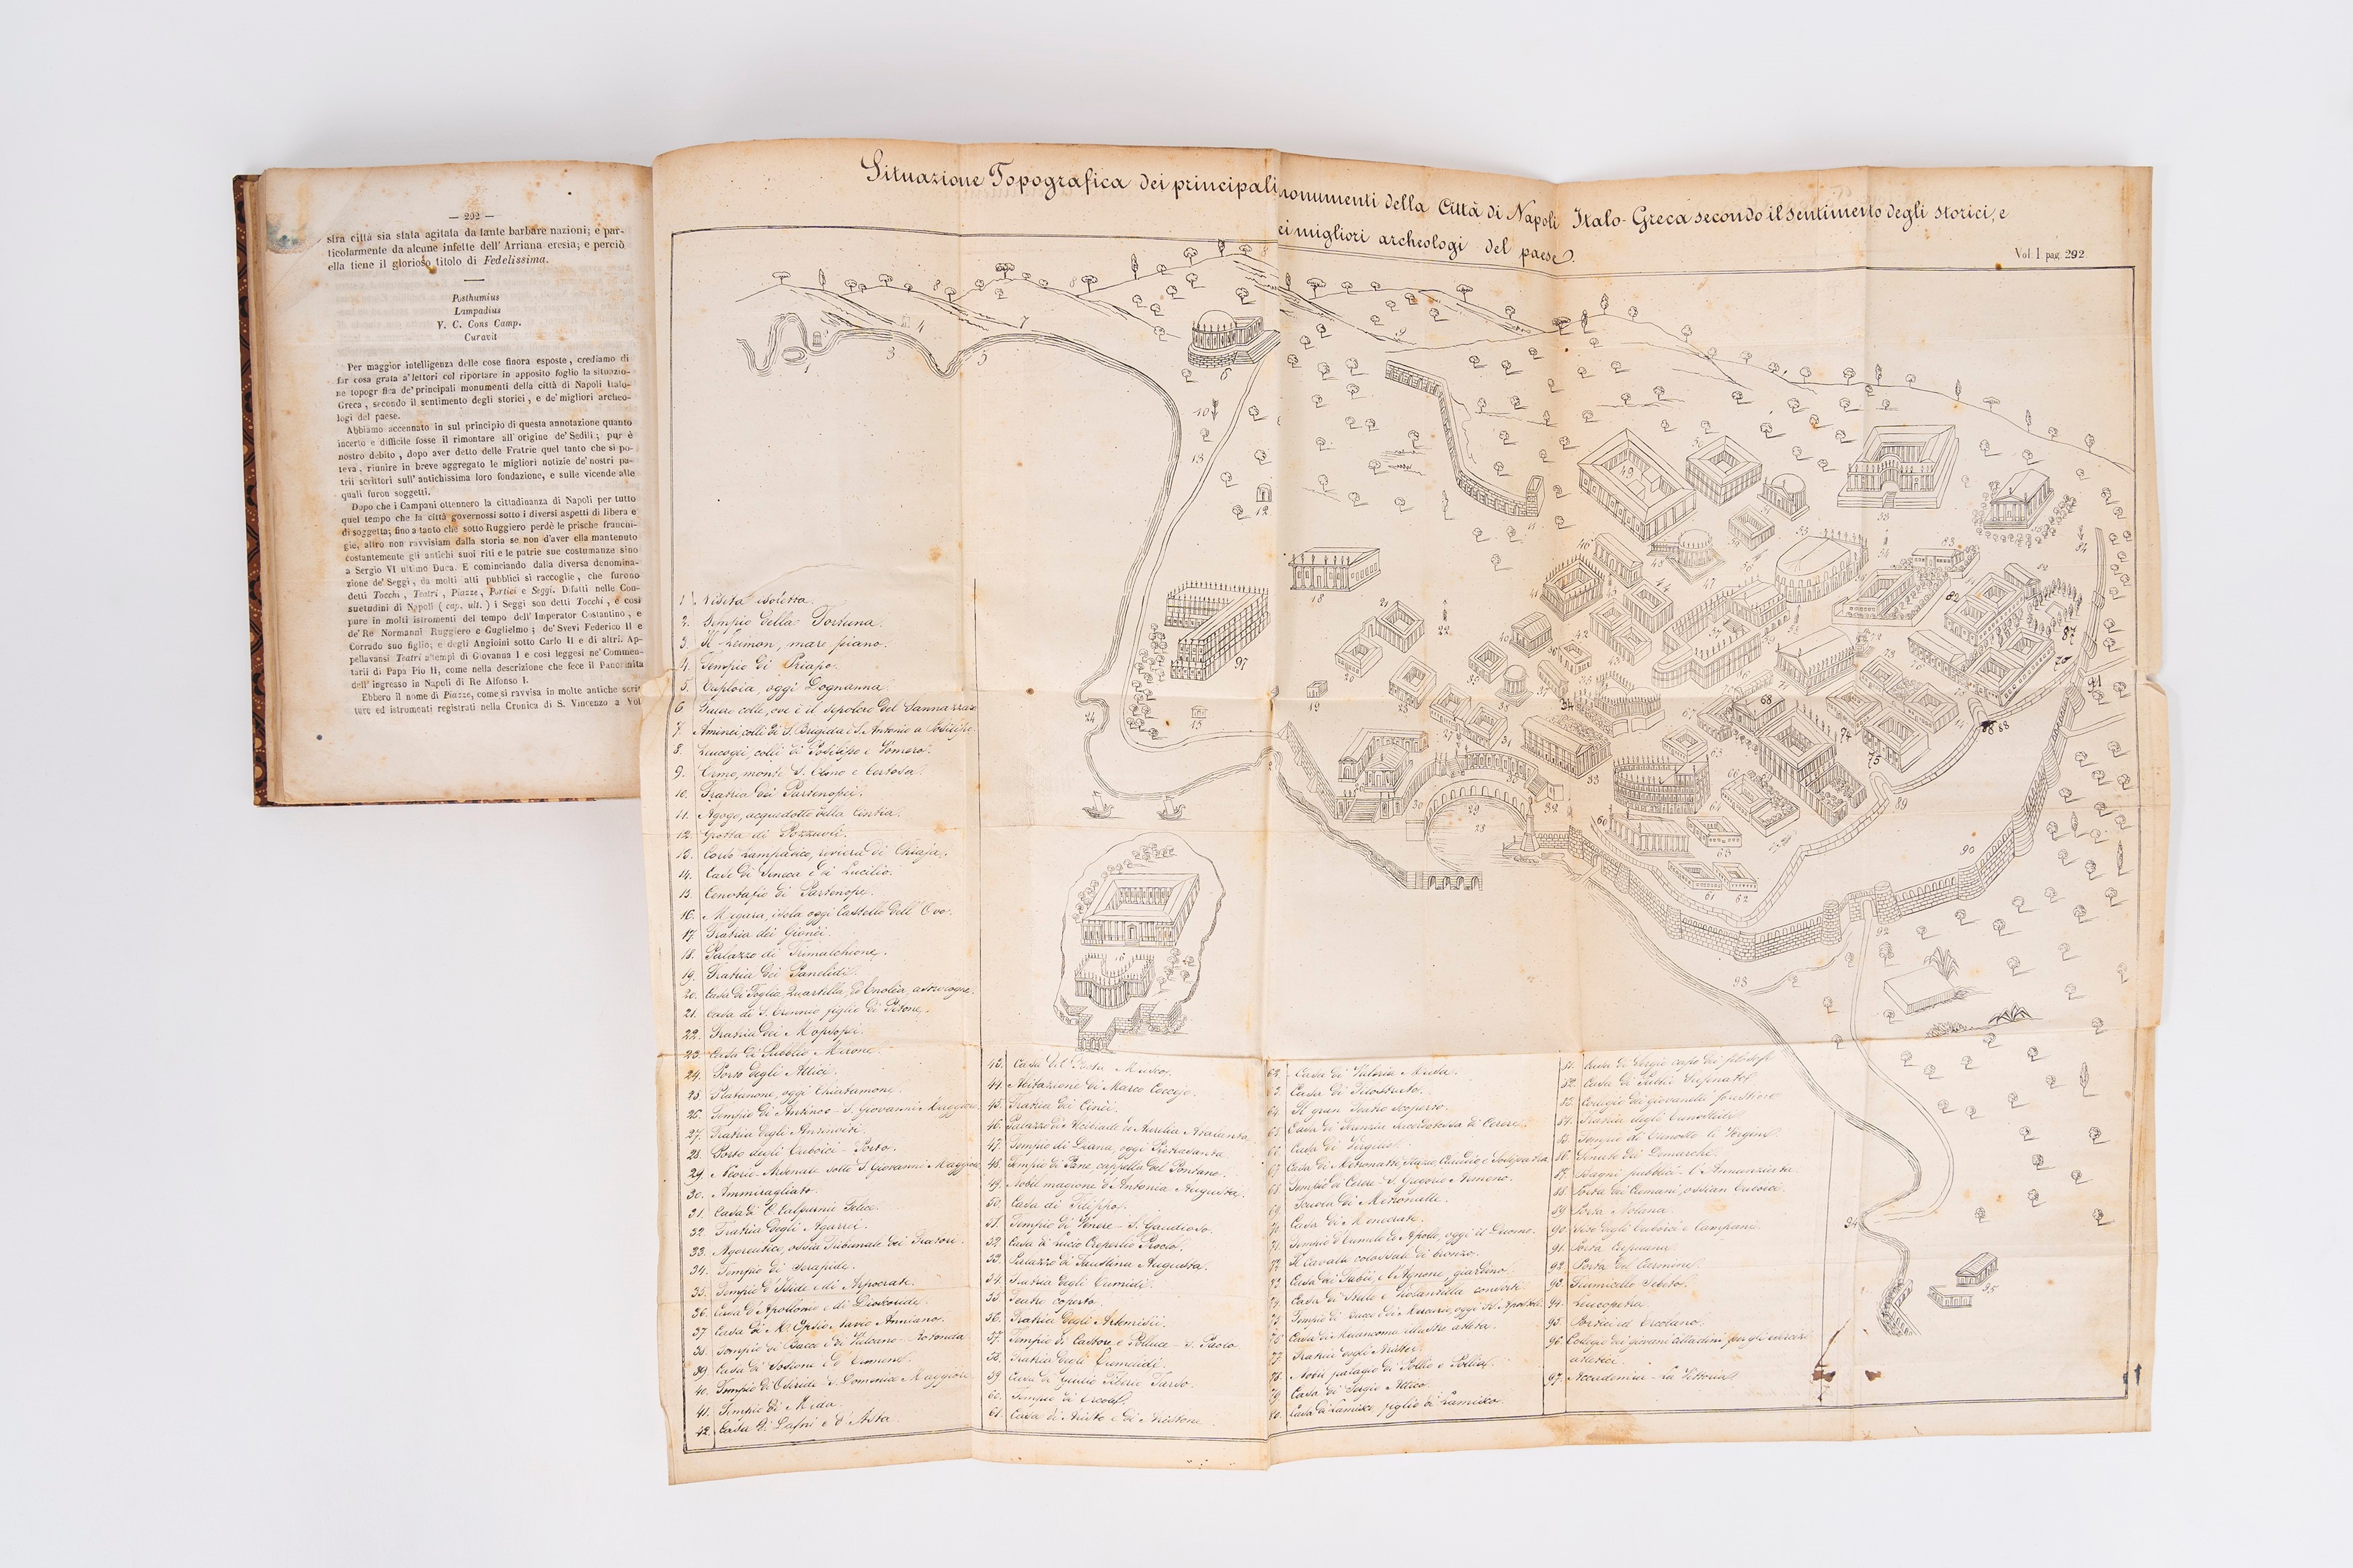 — 292 —
stra città sia stata agitata da tante barbare nazioni; e par-
ticolarmente da alcune infette dell' Arriana eresia; e perciò
ella tiene il glorioso titolo di Fedelissima.
Posthumius
Lampadius
V. C. Cons Camp.
Curavit
Per maggior intelligenza delle cose finora esposte, crediamo di
far cosa grata a' lettori col riportare in apposito foglio la situazio-
ne topogr fica de' principali monumenti della città di Napoli Italo-
Greca, secondo il sentimento degli storici, e de' migliori archeo-
logi del paese.
Abbiamo accennato in sul principio di questa annotazione quanto
incerto e difficile fosse il rimontare all' origine de' Sedili; pur è
nostro debito, dopo aver detto delle Fratrie quel tanto che si po-
teva, riunire in breve aggregato le migliori notizie de' nostri pa-
trii scrittori sull' antichissima loro fondazione, e sulle vicende alle
quali furon soggetti.
Dopo che i Campani ottennero la cittadinanza di Napoli per tutto
quel tempo che la città governossi sotto i diversi aspetti di libera e
di soggetta; fino a tanto che sotto Ruggiero perdè le prische franchi-
gie, altro non ravvisiam dalla storia se non d'aver ella mantenuto
costantemente gli antichi suoi riti e le patrie sue costumanze sino
a Sergio VI ultimo Duca. E cominciando dalla diversa denomina-
zione de' Seggi, da molti atti pubblici si raccoglie, che furono
detti Tocchi, Teatri, Piazze, Portici e Seggi. Difatti nelle Con-
suetudini di Napoli (cap. ult.) i Seggi son detti Tocchi, e così
pure in molti istromenti del tempo dell' Imperator Costantino, e
de' Re Normanni Ruggiero e Guglielmo; de' Svevi Federico II e
Corrado suo figlio; e degli Angioini sotto Carlo II e di altri. Ap-
pellavansi Teatri a' tempi di Giovanna I e così leggesi ne' Commen-
tarii di Papa Pio II, come nella descrizione che fece il Panormita
dell' ingresso in Napoli di Re Alfonso I.
Ebbero il nome di Piazze, come si ravvisa in molte antiche scrit
ture ed istromenti registrati nella Cronica di S. Vincenzo a Vol
Situazione Topografica dei principali monumenti della Città di Napoli Italo-Greca secondo il sentimento degli storici, e
ei migliori archeologi del paese.
Vol. I. pag. 292
1. Nisita isoletta.
2. Tempio della Fortuna.
3. Il Leimon, mare piano.
4. Tempio di Priapo.
5. Euploia, oggi
6. colle, ove è il sepolcro del Sannazzaro
7. Aminei, colli di S. Brigida e S. Antonio a Posilipo.
8. Leucogei, colli di Posilipo e Vomero.
9. Ermo, monte S. Elmo e Certosa.
10. Fratria dei Partenopei.
11. Agogo, acquedotto della
12. Grotta di Pozzuoli.
13. Corso Lampadico, riviera di Chiaja.
14. Case di Seneca e di Lucilio.
15. Cenotafio di Partenope.
16. Megara, isola oggi Castello dell' Ovo.
17. Fratria dei Gionei.
18. Palazzo di Trimalchione.
19. Fratria dei Panelidi.
20. Casa di
21. Casa di figlio di
22. Fratria dei Mopsopei.
23. Casa di Pubblio Mirone.
24. Porto degli Attici.
25. Platanone, oggi Chiatamone.
26. Tempio di Antinoo - S. Giovanni Maggiore.
27. Fratria degli Antinoiti.
28. Porto degli Euboici - Porto.
29. Neorio - Arsenale sotto S. Giovanni Maggiore
30. Ammiragliato.
31. Casa di C. Calpurnio Felice.
32. Fratria degli Agarrei.
33. Agoreutico, ossia Tribunale dei Pratori.
34. Tempio di Serapide.
35. Tempio d'Iside e di Arpocrate.
36. Casa d'Apollonio e di Dioscoride.
37. Casa di M. Opsio Navio Anniano.
38. Tempio di Bacco e di Vulcano - Rotonda
39. Casa di Sosione e di
40. Tempio di Osiride - S. Domenico Maggiore
41. Tempio di
42. Casa di
43. Casa del
44. Abitazione di Marco Coccejo.
45. Fratria dei Cinei.
46. Palazzo di Alcibiade e Aurelia
47. Tempio di Diana, oggi Pietrasanta
48. Tempio di Pane, cappella del Pontano.
49. Nobil magione d'Antonia Augusta.
50. Casa di Filippo.
51. Tempio di Venere - S. Gaudioso.
52. Casa di Lucio Creperio Proclo.
53. Palazzo di Faustina Augusta.
54. Fratria degli Eumidi.
55. Teatro coperto.
56. Fratria degli Artemisii.
57. Tempio di Castore e Polluce - S. Paolo
58. Fratria degli Eumelidi.
59. Casa di Giulio Tiberio Tarso.
60. Tempio di Ercole.
61. Casa di Aristo e di Aristone.
62. Casa di Valeria Musa.
63. Casa di Filostrato.
64. Il gran Teatro scoperto.
65. Casa di sacerdotessa di Cerere.
66. Casa di
67. Casa di Metronatte,
68. Tempio di Cerere - S. Gregorio Armeno.
69. Scuola di Metronatte.
70. Casa di Menecrate.
71. Tempio d'Eumelo ed Apollo, oggi il Duomo.
72. Il Cavallo colossale di bronzo.
73. Casa dei Fabii, e l'Agnone giardino.
74. Casa di
75. Tempio di Mercurio, oggi SS. Apostoli.
76. Casa di Melancoma illustre atleta.
77. Fratria degli Aristei.
78. Nobil palagio di Pollio e Pollia.
79. Casa di Sergio Attico.
80. Casa di Lamisco figlio di Lamisco.
81. Casa di Sergio capo dei filosofi
82. Casa di
83. Collegio dei giovanetti forestieri
84. Fratria degli Eunostidi
85. Tempio di Eunosto li Vergini.
86. Senato dei Demarchi.
87. Bagni pubblici - l'Annunziata
88. Porta dei Cumani, ossian Euboici.
89. Porta Nolana.
90. degli Euboici e Campani.
91. Porta Capuana
92. Porta del Carmine.
93. Fiumicello Sebeto.
94. Leucopetra
95. Portici ed Ercolano.
96. Collegio dei giovani cittadini per gli esercizi
atletici.
97. Accademia - La Vittoria